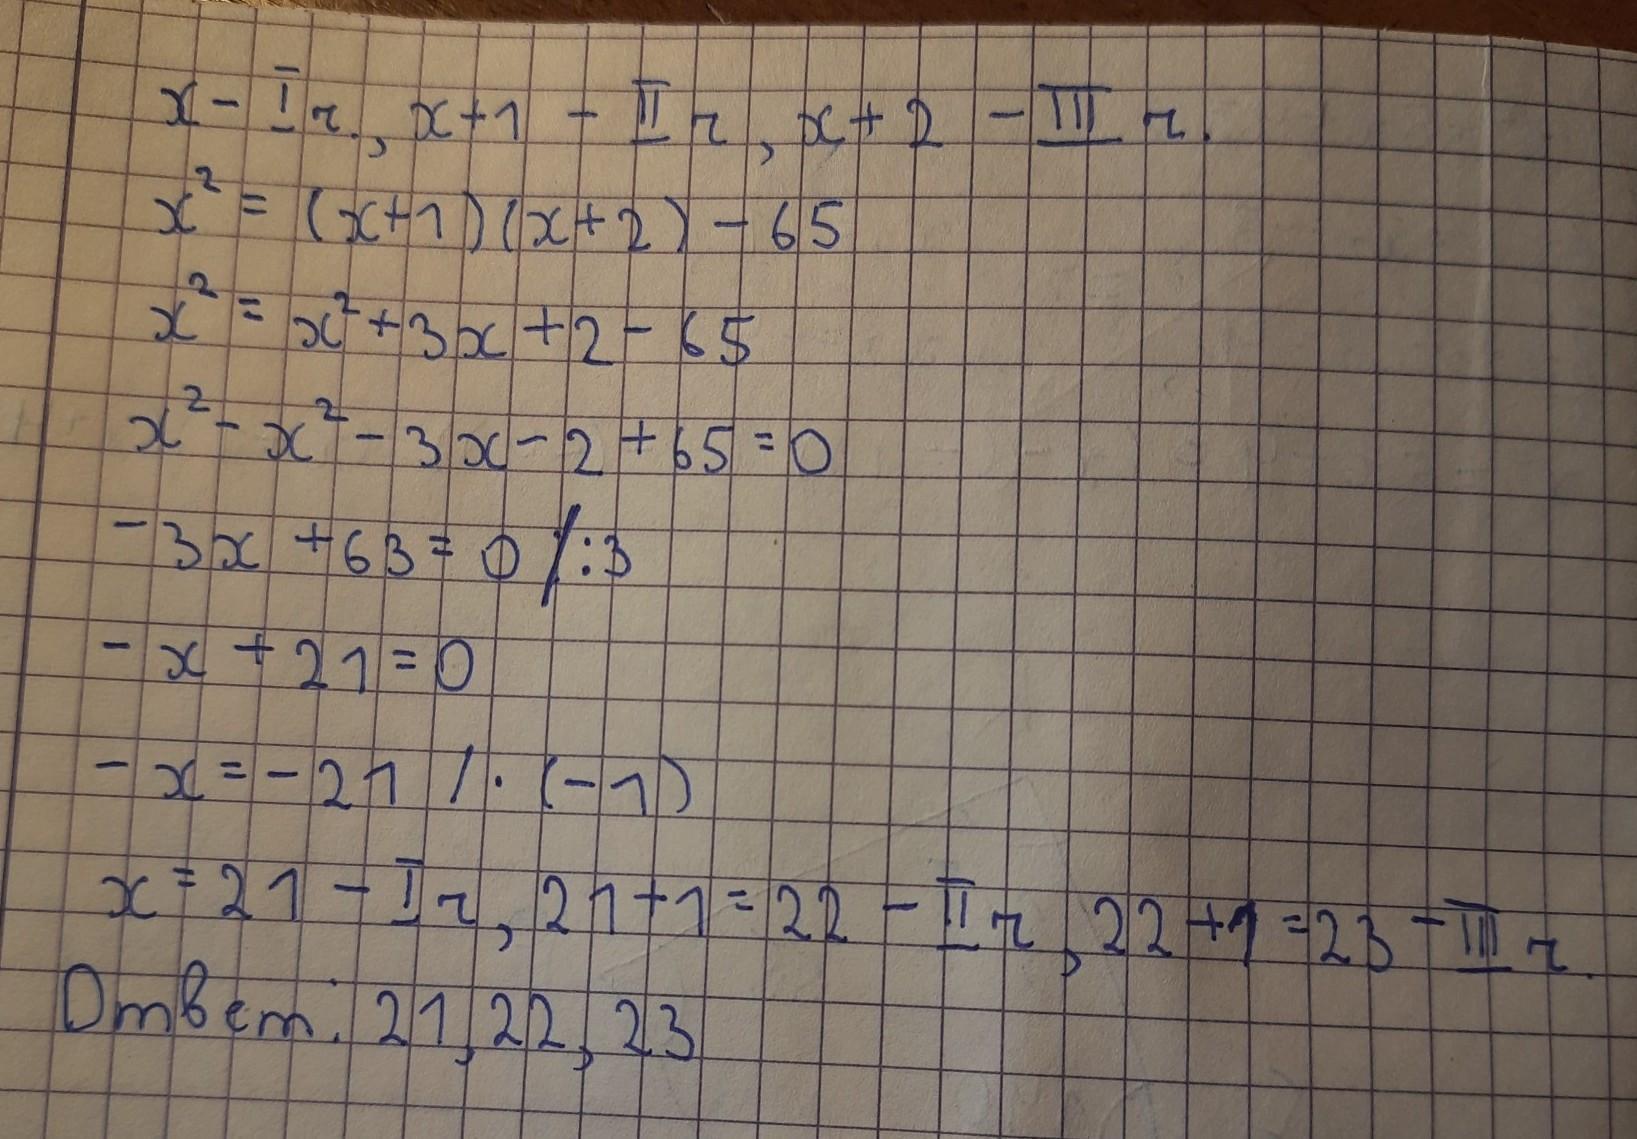 x - I ч., x+1 - II ч, x+2 - III ч.
x² = (x+1)(x+2) - 65
x² = x² + 3x + 2 - 65
x² - x² - 3x - 2 + 65 = 0
-3x + 63 = 0 /:3
-x + 21 = 0
-x = -21 /· (-1)
x = 21 - I ч, 21+1 = 22 - II ч, 22+1 = 23 - III ч.
Ответ: 21, 22, 23